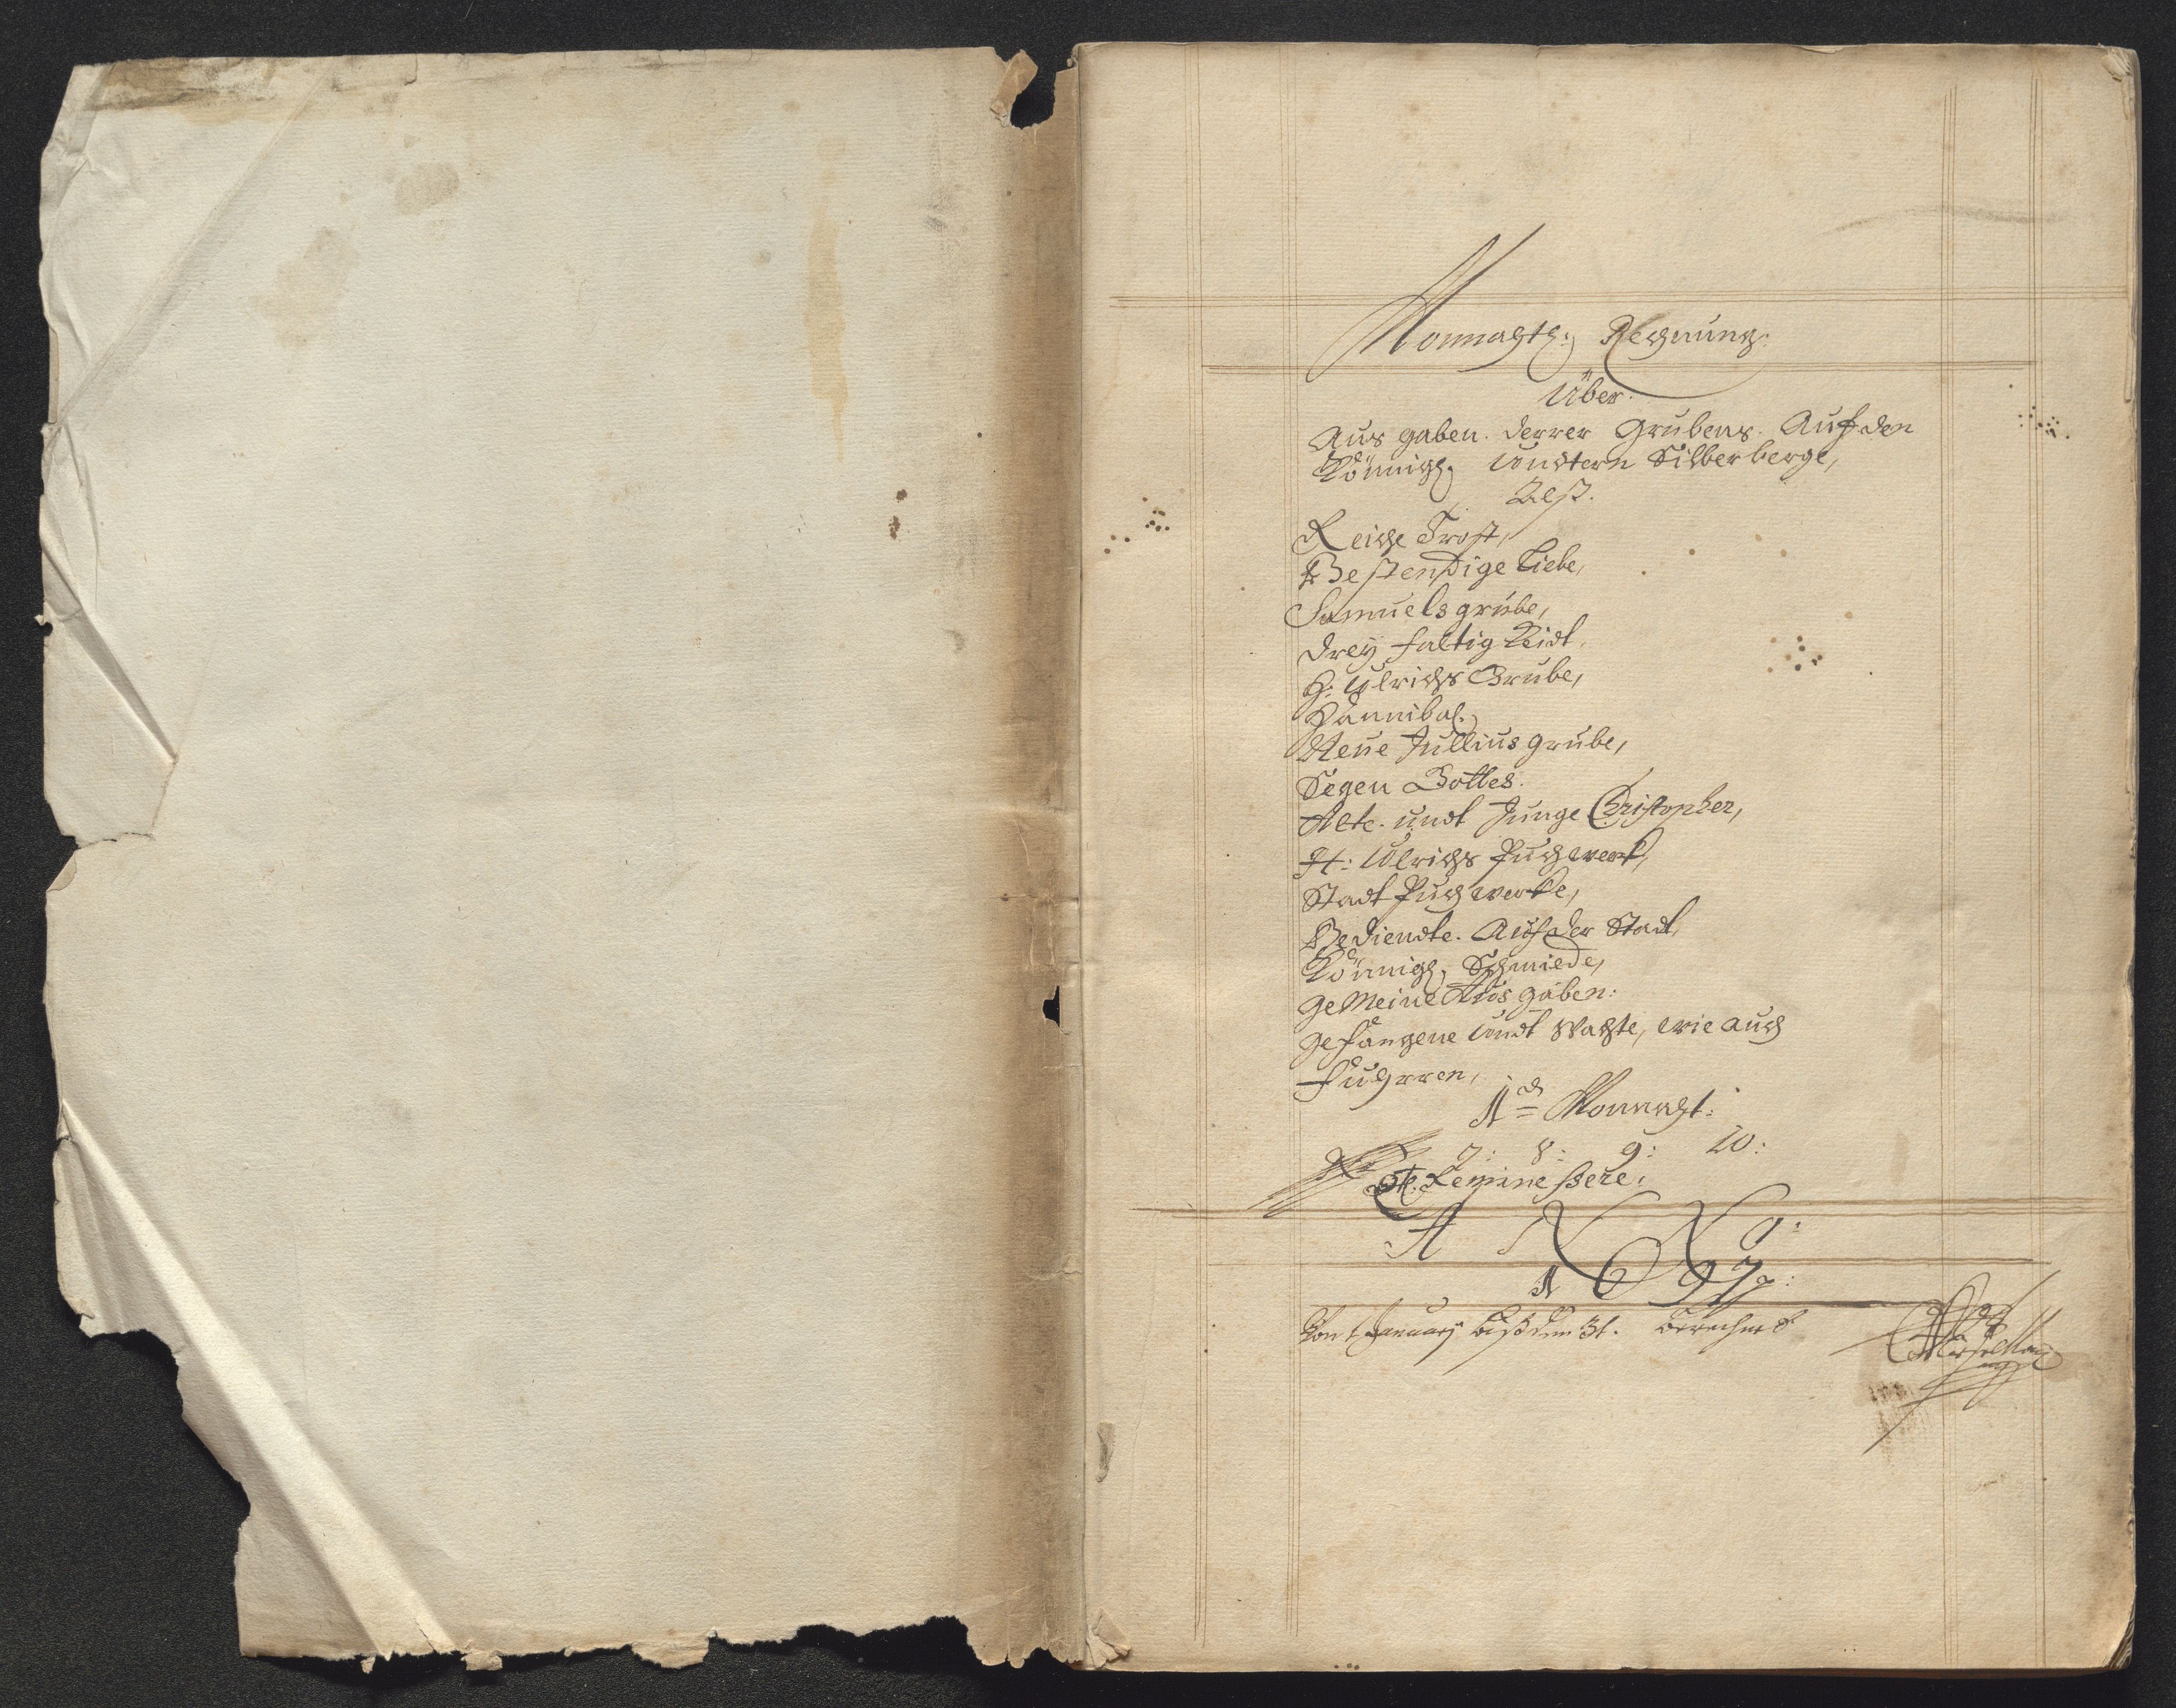 Monnahtl: Rechnung:
Über.
Aus gaben. derrer Grubens. Auf den
Königl. Undtern Silberberge,
Alß.
Reiche Trost,
Bestendige Liebe,
Samuels grube,
Drey faltig Keidt.
H: Ulrichs Grube,
Hannibal.
Neue Jullius grube,
Segen Gottes.
Alte. undt Junge Christopher,
H: Ulrichs Puchwerk,
Stadt Puchwerke,
Bediendte. Auf der Stadt,
Königl. Schmiede,
Gemeine Aus gaben:
Gefangene Undt Wachte, wie auch
Fuhrren,
1 Monnaht:
7: 8: 9: 10:
Reminessere.
A N N O:
1697:
Von 1 January biß den 31. berechnet